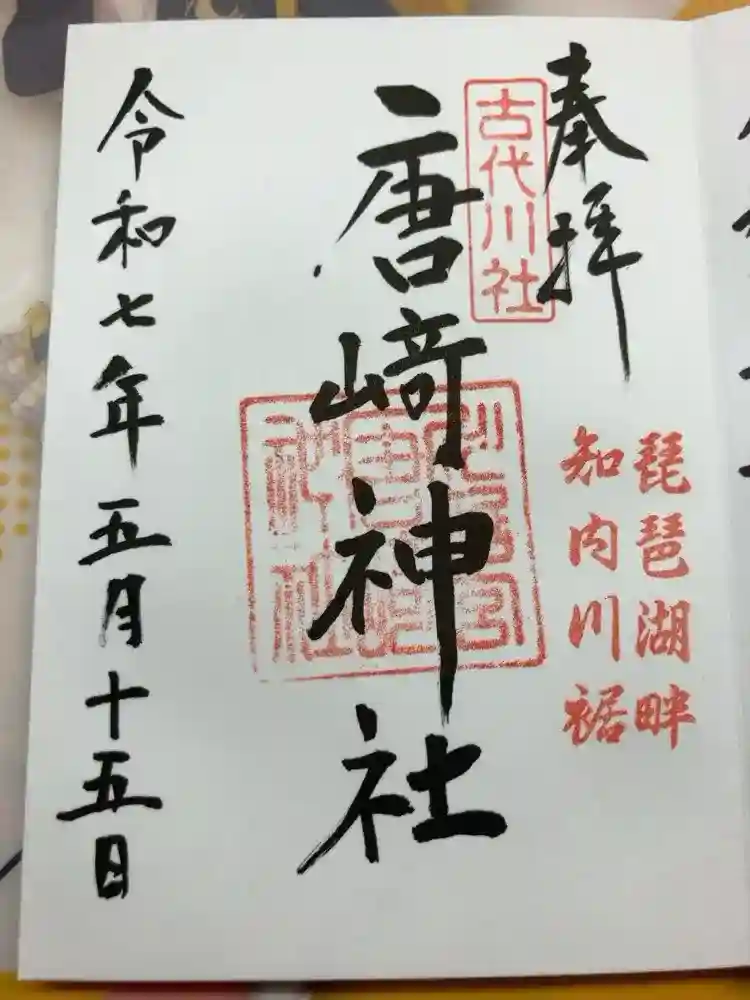 奉拝
古代川社
琵琶湖畔
知内川裾
唐崎神社
令和七年五月十五日